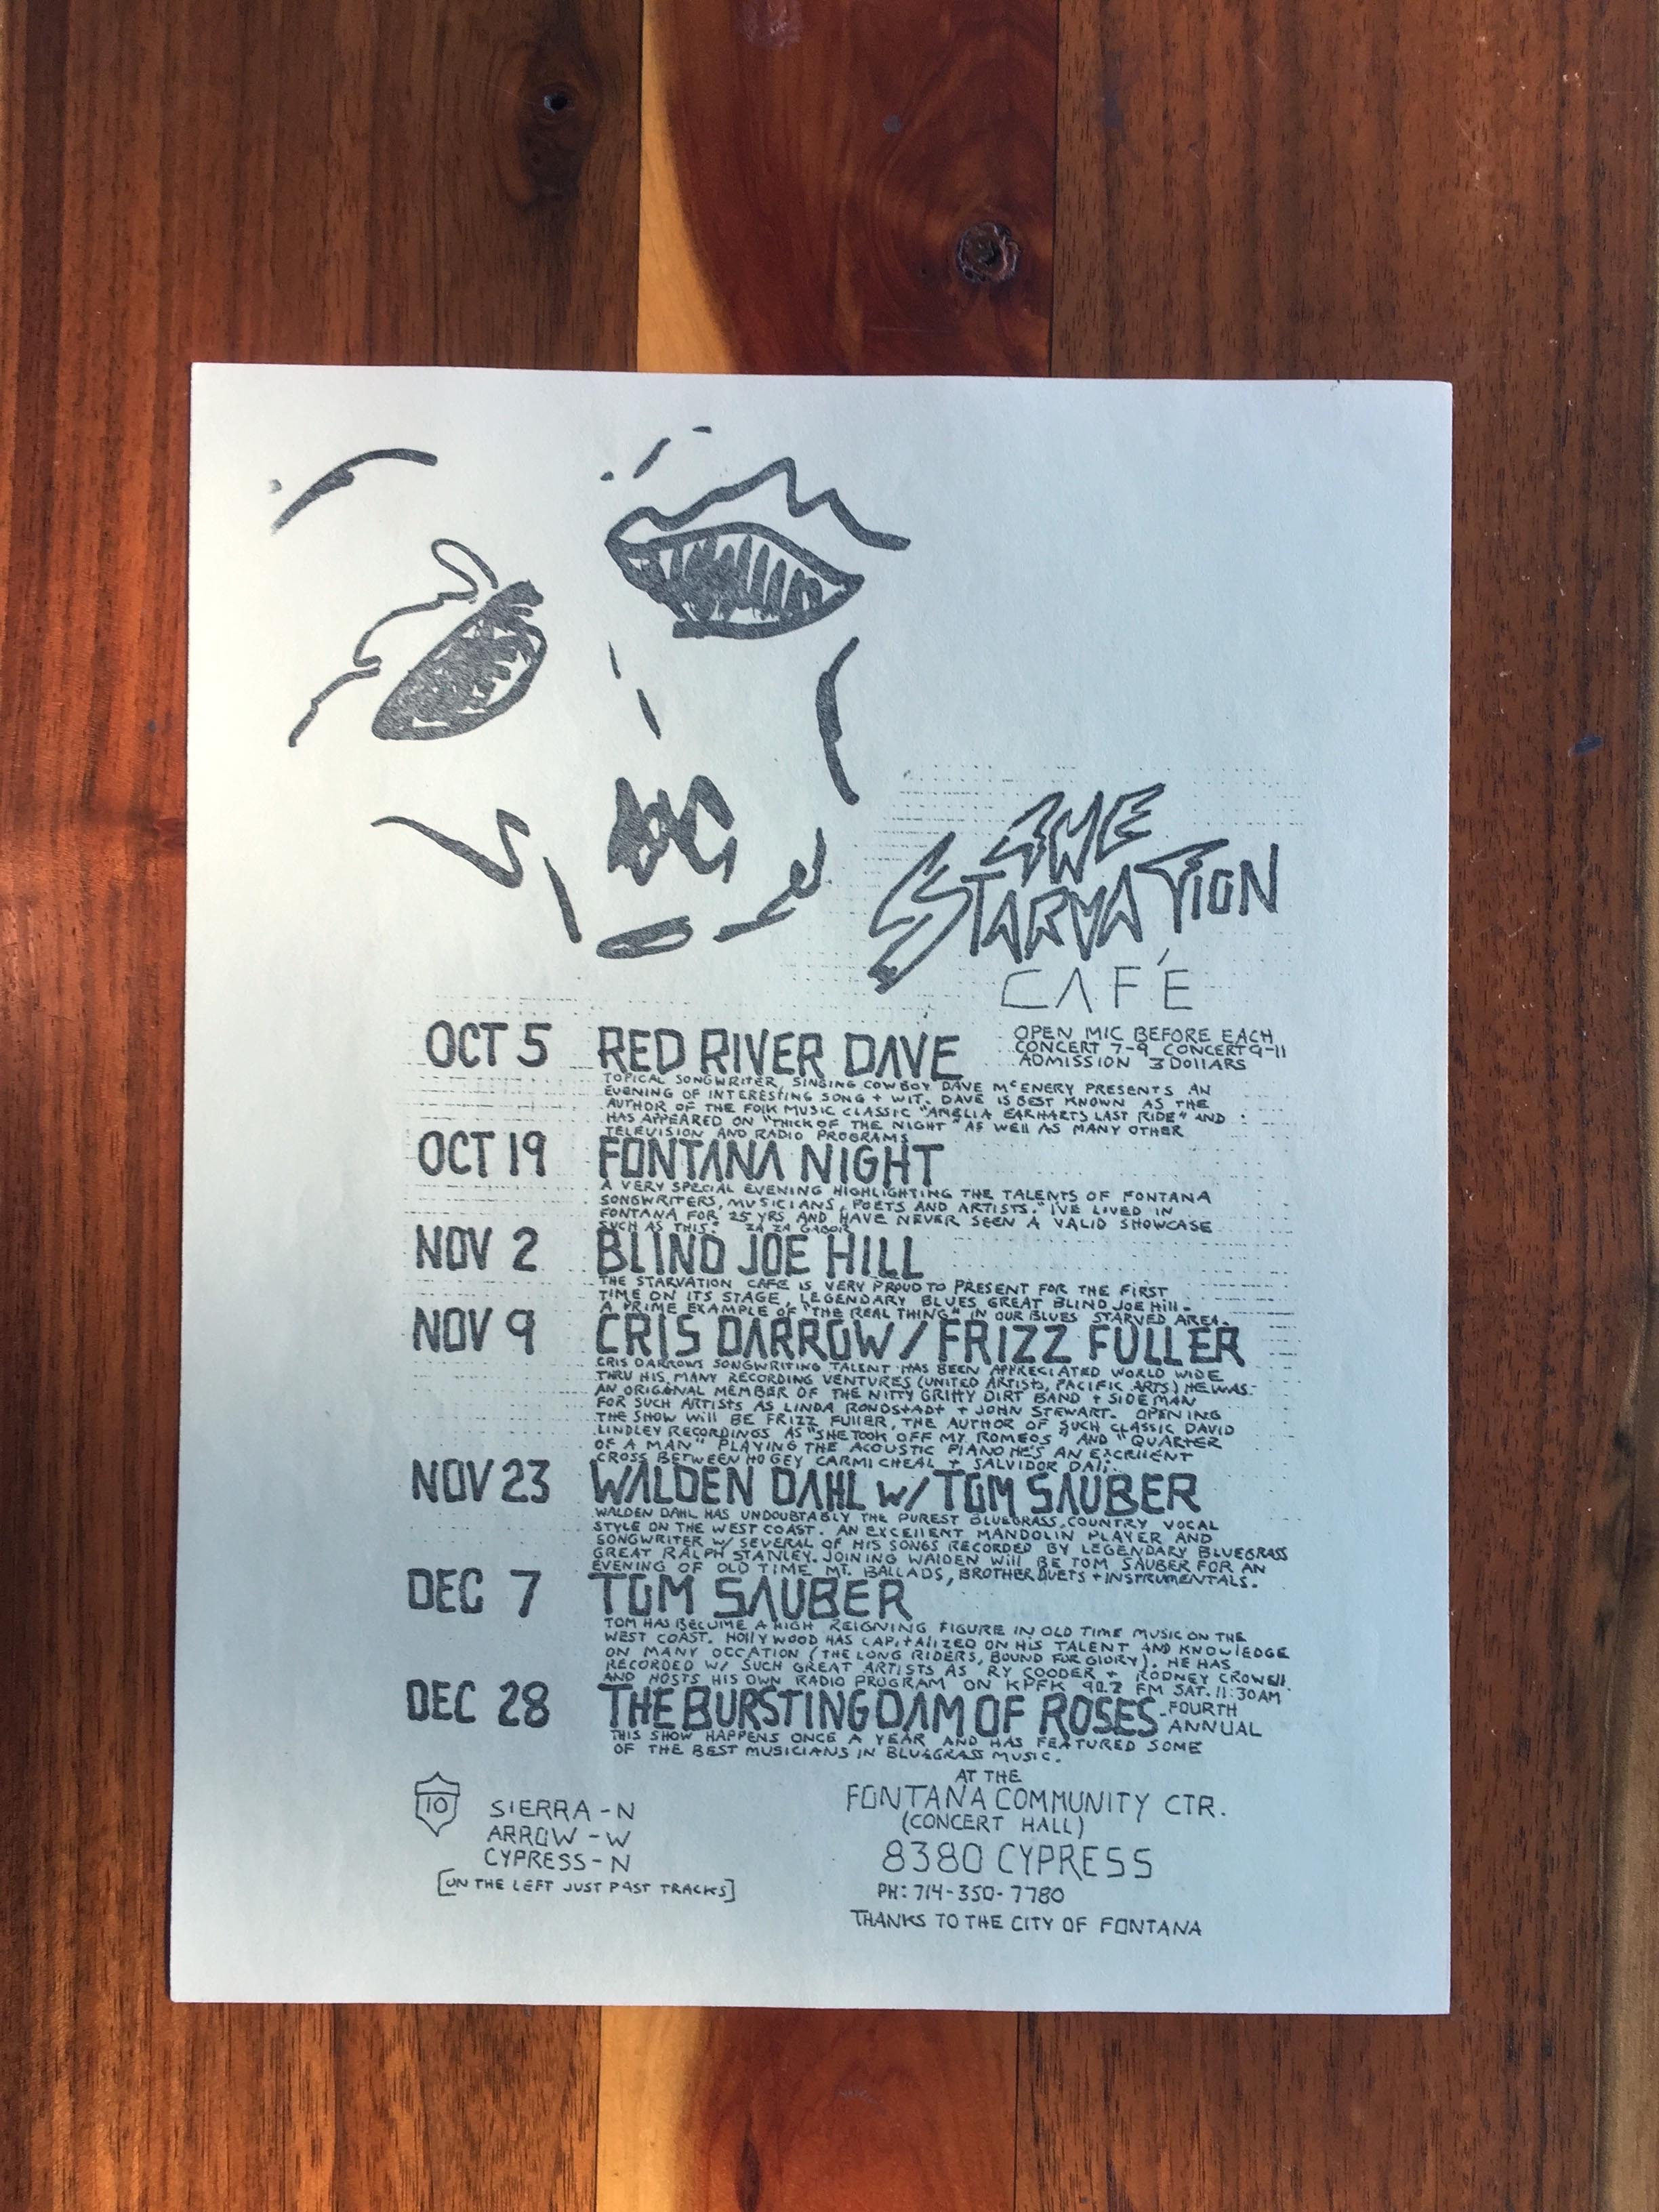 THE
STARVATION
CAFÉ
OPEN MIC BEFORE EACH
CONCERT 7-9 CONCERT 9-11
ADMISSION 3 DOllARS
OCT 5 RED RIVER DAVE
TOPICAL SONGWRITER, SINGING COWBOY DAVE McENERY PRESENTS AN
EVENING OF INTERESTING SONG + WIT. DAVE IS BEST KNOWN AS THE
AUTHOR OF THE FOlK MUSIC CLASSIC "AMELIA EARHARTS LAST RIDE" AND
HAS APPEARED ON "THICK OF THE NIGHT" AS WEll AS MANY OTHER
TELEVISION AND RADIO PROGRAMS
OCT 19 FONTANA NIGHT
A VERY SPECIAL EVENING HIGHLIGHTING THE TALENTS OF FONTANA
SONGWRITERS, MUSICIANS, POETS AND ARTISTS. "I'VE LIVED IN
FONTANA FOR 25 YRS AND HAVE NEVER SEEN A VALID SHOWCASE
SUCH AS THIS." ZA ZA GABOR
NOV 2 BLIND JOE HILL
THE STARVATION CAFE IS VERY PROUD TO PRESENT FOR THE FIRST
TIME ON ITS STAGE, LEGENDARY BLUES GREAT BLIND JOE Hill-
A PRIME EXAMPLE OF "THE REAL THING" IN OUR BLUES STARVED AREA.
NOV 9 CRIS DARROW / FRIZZ FULLER
CRIS DARROWS SONGWRITING TALENT HAS BEEN APPRECIATED WORLD WIDE
THRU HIS MANY RECORDING VENTURES (UNITED ARTISTS, PACIFIC ARTS) HE WAS
AN ORIGANAL MEMBER OF THE NITTY GRITTY DIRT BAND + SIDEMAN
FOR SUCH ARTISTS AS LINDA RONDSTADT + JOHN STEWART. OPENING
THE SHOW Will BE FRIZZ FUllER, THE AUTHOR OF SUCH CLASSIC DAVID
LINDLEY RECORDINGS AS "SHE TOOK OFF MY ROMEOS" AND "QUARTER
OF A MAN" PLAYING THE ACOUSTIC PIANO HE'S AN EXCEllENT
CROSS BETWEEN HOGEY CARMICHEAL + SALVIDOR DALI.
NOV 23 WALDEN DAHL w/ TOM SAUBER
WALDEN DAHL HAS UNDOUBTABLY THE PUREST BLUEGRASS, COUNTRY VOCAL
STYLE ON THE WEST COAST. AN EXCEllENT MANDOLIN PLAYER AND
SONGWRITER W/ SEVERAL OF HIS SONGS RECORDED BY LEGENDARY BLUEGRASS
GREAT RALPH STANLEY. JOINING WALDEN Will BE TOM SAUBER FOR AN
EVENING OF OLD TIME MT. BALLADS, BROTHER DUETS + INSTRUMENTALS.
DEC 7 TOM SAUBER
TOM HAS BECUME A HIGH REIGNING FIGURE IN OLD TIME MUSIC ON THE
WEST COAST. HOllYWOOD HAS CAPITALIZED ON HIS TALENT AND KNOWlEDGE
ON MANY OCCATION (THE LONG RIDERS, BOUND FOR GLORY). HE HAS
RECORDED W/ SUCH GREAT ARTISTS AS RY COODER + RODNEY CROWEll
AND HOSTS HIS OWN RADIO PROGRAM ON KPFK 90.7 FM SAT. 11:30AM
DEC 28 THE BURSTING DAM OF ROSES - FOURTH
ANNUAL
THIS SHOW HAPPENS ONCE A YEAR AND HAS FEATURED SOME
OF THE BEST MUSICIANS IN BLUEGRASS MUSIC.
10
SIERRA - N
ARROW - W
CYPRESS - N
[ON THE LEFT JUST PAST TRACKS]
AT THE
FONTANA COMMUNITY CTR.
(CONCERT HALL)
8380 CYPRESS
PH: 714-350-7780
THANKS TO THE CITY OF FONTANA